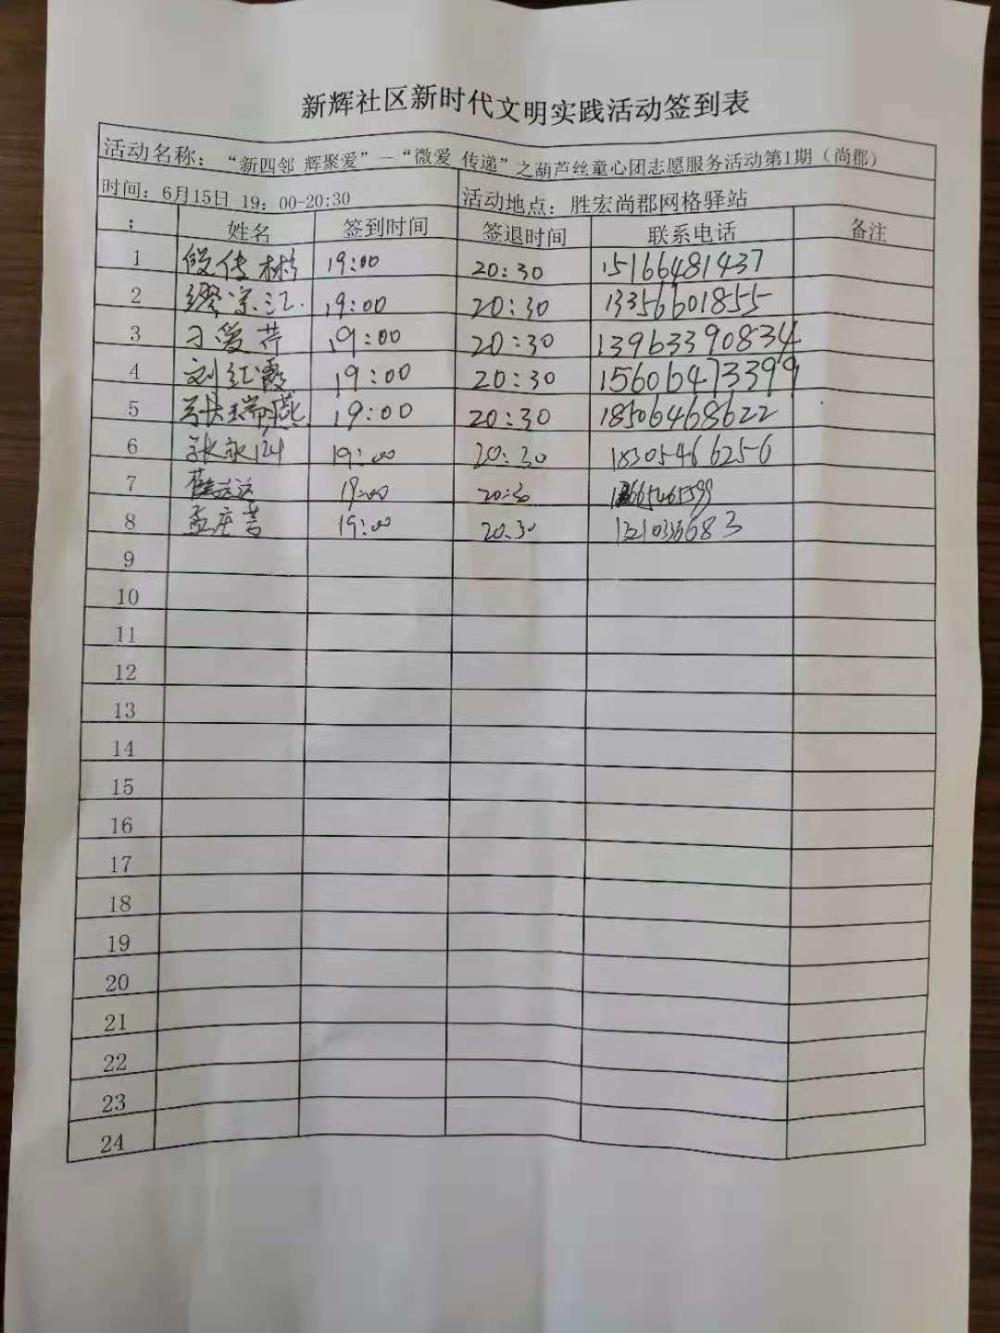 新辉社区新时代文明实践活动签到表
活动名称：“新四邻 辉聚爱”—“微爱 传递”之葫芦丝童心团志愿服务活动第1期（尚郡）
时间：6月15日 19：00-20:30 活动地点：胜宏尚郡网格驿站
： 姓名 签到时间 签退时间 联系电话 备注
1 段传彬 19:00 20:30 15166481437
2 19:00 20:30 13356601855
3 刁爱芹 19:00 20:30 13963390834
4 刘红霞 19:00 20:30 15606473399
5 张瑞燕 19:00 20:30 18506468622
6 张永训 19:00 20:30 18305466256
7 19:00 20:30
8 19:00 20:30
9
10
11
12
13
14
15
16
17
18
19
20
21
22
23
24